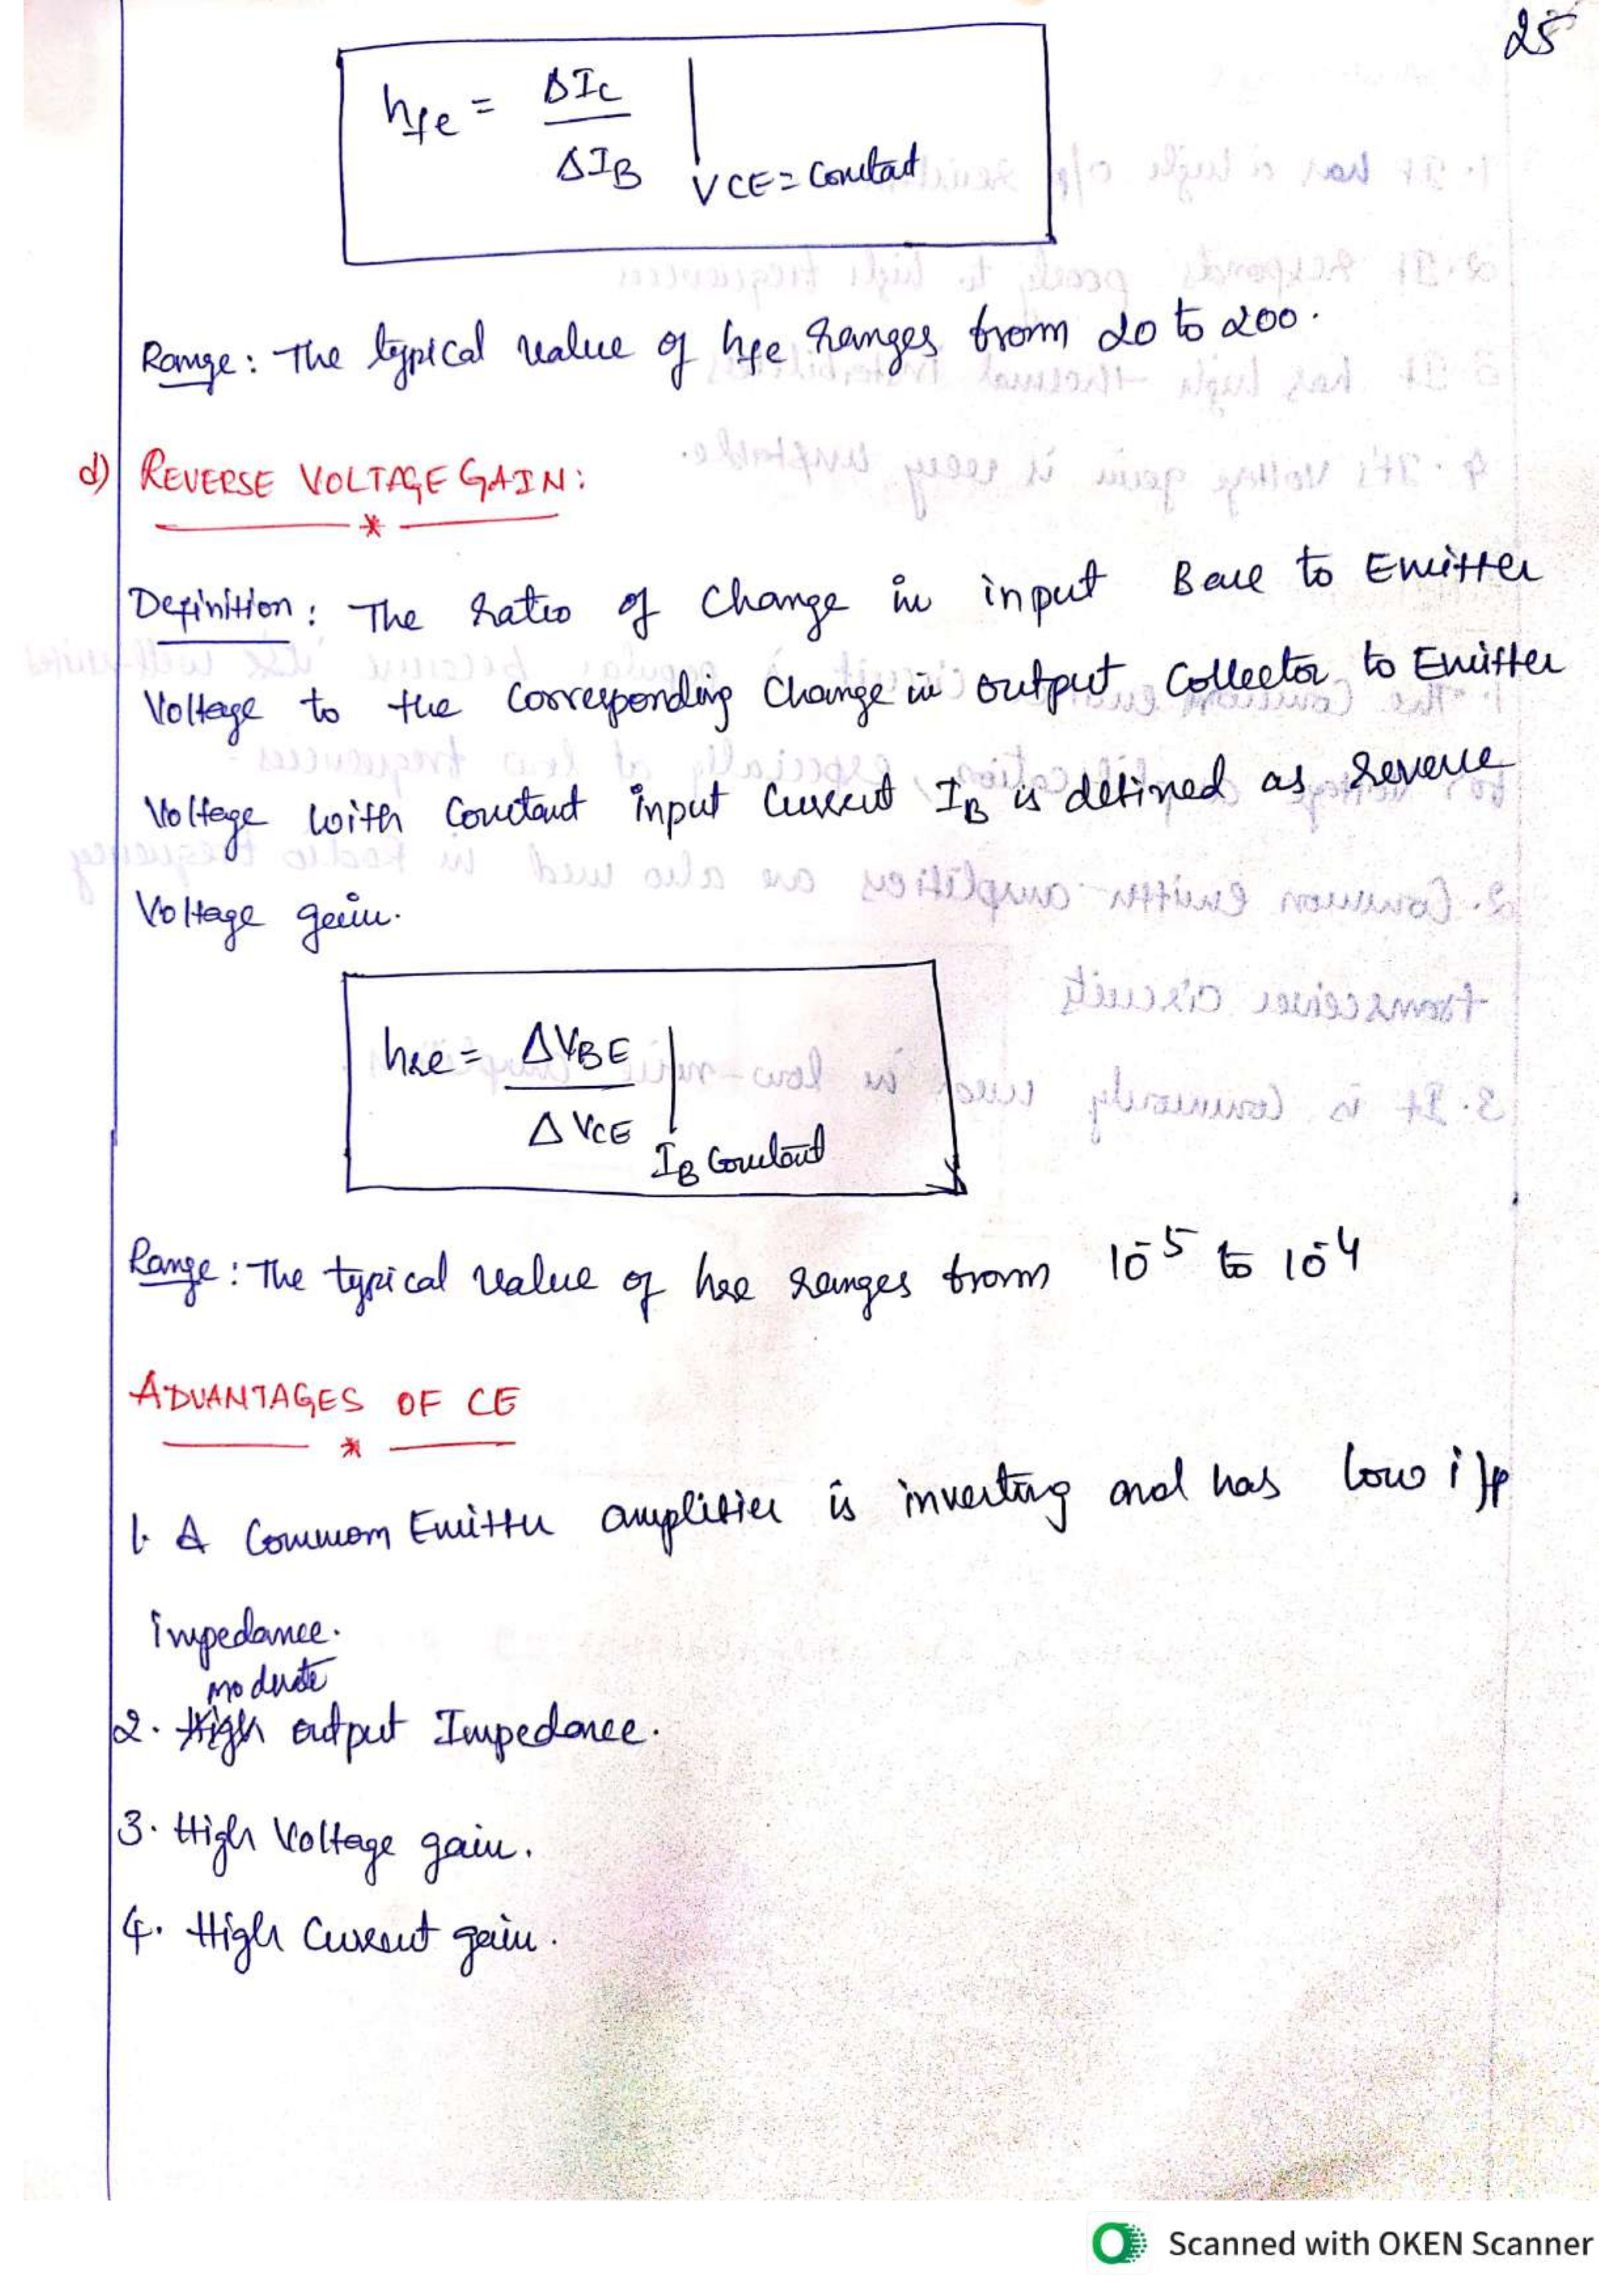 25
hfe = ΔIC / ΔIB | VCE = Constant
Range: The typical value of hfe ranges from 20 to 200.
d) REVERSE VOLTAGE GAIN:
Definition: The ratio of change in input Base to Emitter
Voltage to the corresponding change in output collector to Emitter
Voltage with constant input current IB is defined as reverse
Voltage gain.
hre = ΔVBE / ΔVCE | IB Constant
Range: The typical value of hre ranges from 10^-5 to 10^-4
ADVANTAGES OF CE
1. A Common Emitter amplifier is inverting and has low i/p
impedance.
moderate
2. High output Impedance.
3. High Voltage gain.
4. High Current gain.
Scanned with OKEN Scanner